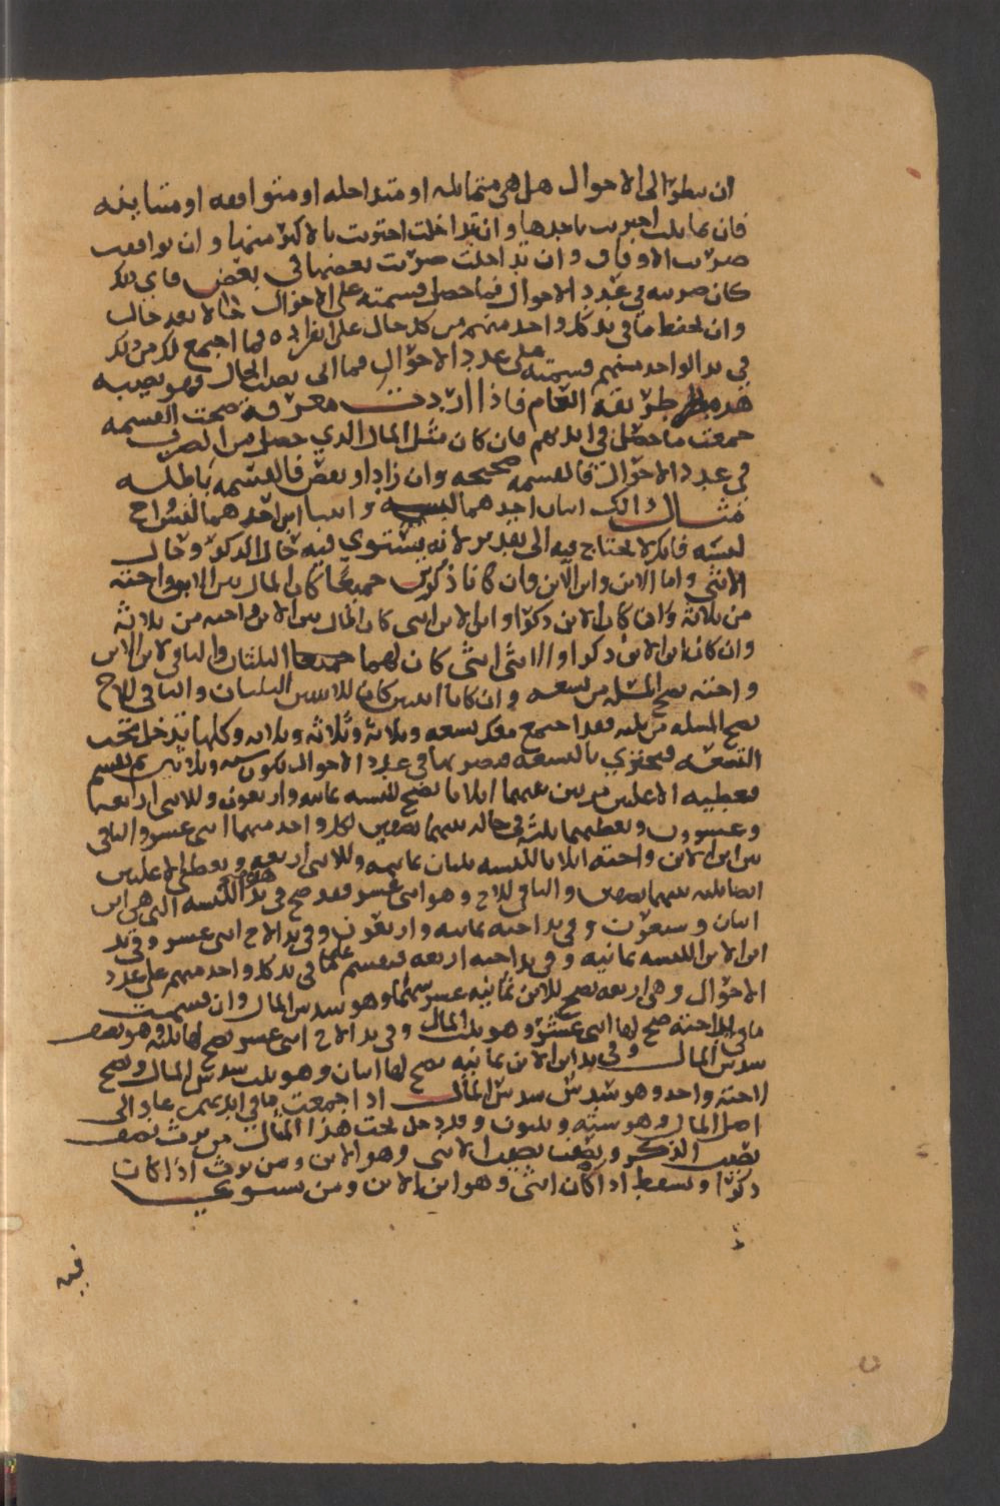 ان ينظر الى الاحوال هل هي متماثله او متداخله او متوافقه او متباينه
فان تماثلت اجتزيت باحدها وان تداخلت اجتزيت بالاكثر منها وان توافقت
ضربت الاوفاق وان تباينت ضربت بعضها في بعض فاي ذلك
كان ضربته في عدد الاحوال فما حصل قسمته على الاحوال حالا بعد حال
وان تحفظ ما في يد كل واحد منهم من كل حال على انفراده فما اجتمع لك من ذلك
في يد الواحد منهم قسمته على عدد الاحوال فما اتى نصف الحال فهو نصيبه
هذه طريقة العام فاذا اردت معرفة صحت القسمه
جمعت ما حصل في ايديهم فان كان مثل المال الذي حصل من الضرب
في عدد الاحوال فالقسمه صحيحه وان زاد او نقص فالقسمه باطله
مثال ذالك ابنان احدهما لبسه وابنا ابن احدهما لبسه واخ
لبسه فانك لا تحتاج فيه الى تقدير لانه يستوي فيه حال الذكر وحال
الانثى واما الابن وابن الابن فان كانا ذكرين جميعا كان المال بين الابن واخته
من ثلاثة وان كان الابن ذكرا وابن الابن انثى كان المال بين الابن واخته من ثلاثة
وان كان ابن الابن ذكرا والانثى انثى كان لهما الثلثان والباقي لابن الابن
واخته تصح المسئله من تسعه وان كانا انثيين كان للابنتين الثلثان والباقي للاخ
تصح المسله من ثلثه فقد اجتمع معك تسعه وثلاثه وثلاثه وثلاثه وكلها تدخل تحت
التسعه فتجتزي بالتسعه فتضربها في عدد الاحوال تكون سته وثلاثين ثم تقسم
فتعطيه الاعلين مرتين بينهما اثلاثا يصح للبسه ثمانيه واربعون وللانثى اربعه
وعشرون وتعطيهما ثلثه في حاله بينهما نصفين لكل واحد منهما اثنى عشر والباقي
بين ابن الابن واخته اثلاثا للبسه ثلثان ثمانيه وللانثى اربعه وتعطي الاعلين
ايضا ثلثه بينهما نصفين والباقي للاخ وهو اثنى عشر فقد صح في يد اللبسه التي هي ابن
اثنان وسبعون وفي يد اخته ثمانيه واربعون وفي يد الاخ اثنى عشر وفي يد
ابن الابن اللبسه ثمانيه وفي يد اخته اربعه فتقسم ما في يد كل واحد منهم على عدد
الاحوال وهي اربعه يصح للابن ثمانيه عشر سهما وهو سدس المال وان قسمت
ما في يد اخته صح لها اثنى عشر وهو ثلث المال وفي يد الاخ اثنى عشر يصح لها ثلثه وهو نصف
سدس المال وفي يد ابن الابن ثمانيه يصح لها اثنان وهو ثلث سدس المال ويصح
لاخته واحد وهو سدس سدس المال اذا جمعت ما في ايديهم عاد الى
اصل المال وهو سته وثلثون وقد دخل تحت هذا المثال من يرث نصف
نصيب الذكر ونصف نصيب الانثى وهو الابن ومن يرث اذا كان
ذكرا ويسقط اذا كان انثى وهو ابن الابن ومن يستوي
فيه